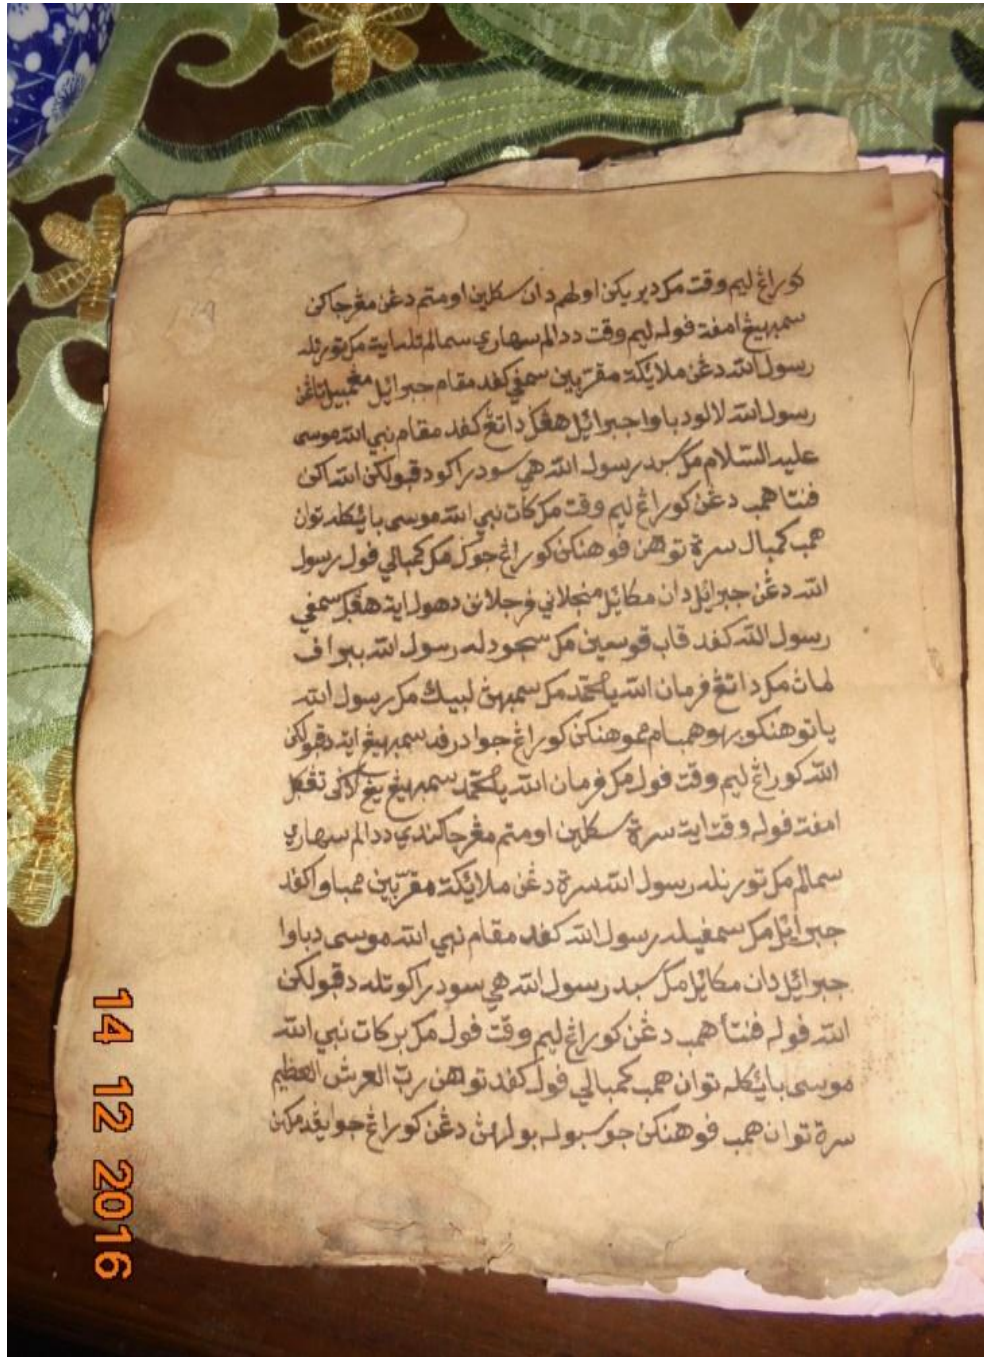 كوراڠ ليم وقت مك دبريكن اولهم دان سكلين اومتم دڠن مڠرجاكن
سمبهيڠ امفت فوله ليم وقت ددالم سهاري سمالم تله ايت مك تورنله
رسول الله دڠن ملايكة مقربين سمفي كفد مقام جبرائيل مڠمبيل تاڠن
رسول الله لالو دباوا جبرائيل هڠݢ داتڠ كفد مقام نبي الله موسى
عليه السلام مك سبد رسول الله هي سودراكو دقبولكن الله اكن
فنتا همب دڠن كوراڠ ليم وقت مك كات نبي الله موسى بائيكله توان
همب كمبال سرة توهن فوهنكن كوراڠ جوك مك كمبالي فول رسول
الله دڠن جبرائيل دان مكائيل منجلاني فرجلانن دهول ايت هڠݢ سمفي
رسول الله كفد قاب قوسين مك سجودله رسول الله ببراف
لمان مك داتڠ فرمان الله يا محمد مك سمبهن لبيك مك رسول الله
يا توهنكو بهو همبام موهنكن كوراڠ جوا درفد سمبهيڠ ايت دقبولكن
الله كوراڠ ليم وقت فول مك فرمان الله يا محمد سمبهيڠ يڠ لاݢي تڠݢل
امفت فوله وقت ايت سرة سكلين اومتم مڠرجاكندي ددالم سهاري
سمالم مك تورنله رسول الله سرة دڠن ملايكة مقربين ممباوا كفد
جبرائيل مك سمفيله رسول الله كفد مقام نبي الله موسى دباوا
جبرائيل دان مكائيل مك سبد رسول الله هي سودراكو تله دقبولكن
الله فوله فنتأ همب دڠن كوراڠ ليم وقت فول مك بركات نبي الله
موسى بائيكله توان همب كمبالي فول كفد توهن رب العرش العظيم
سرة توان همب فوهنكن جو سبوله بولهن دڠن كوراڠ جوا
14 12 2016